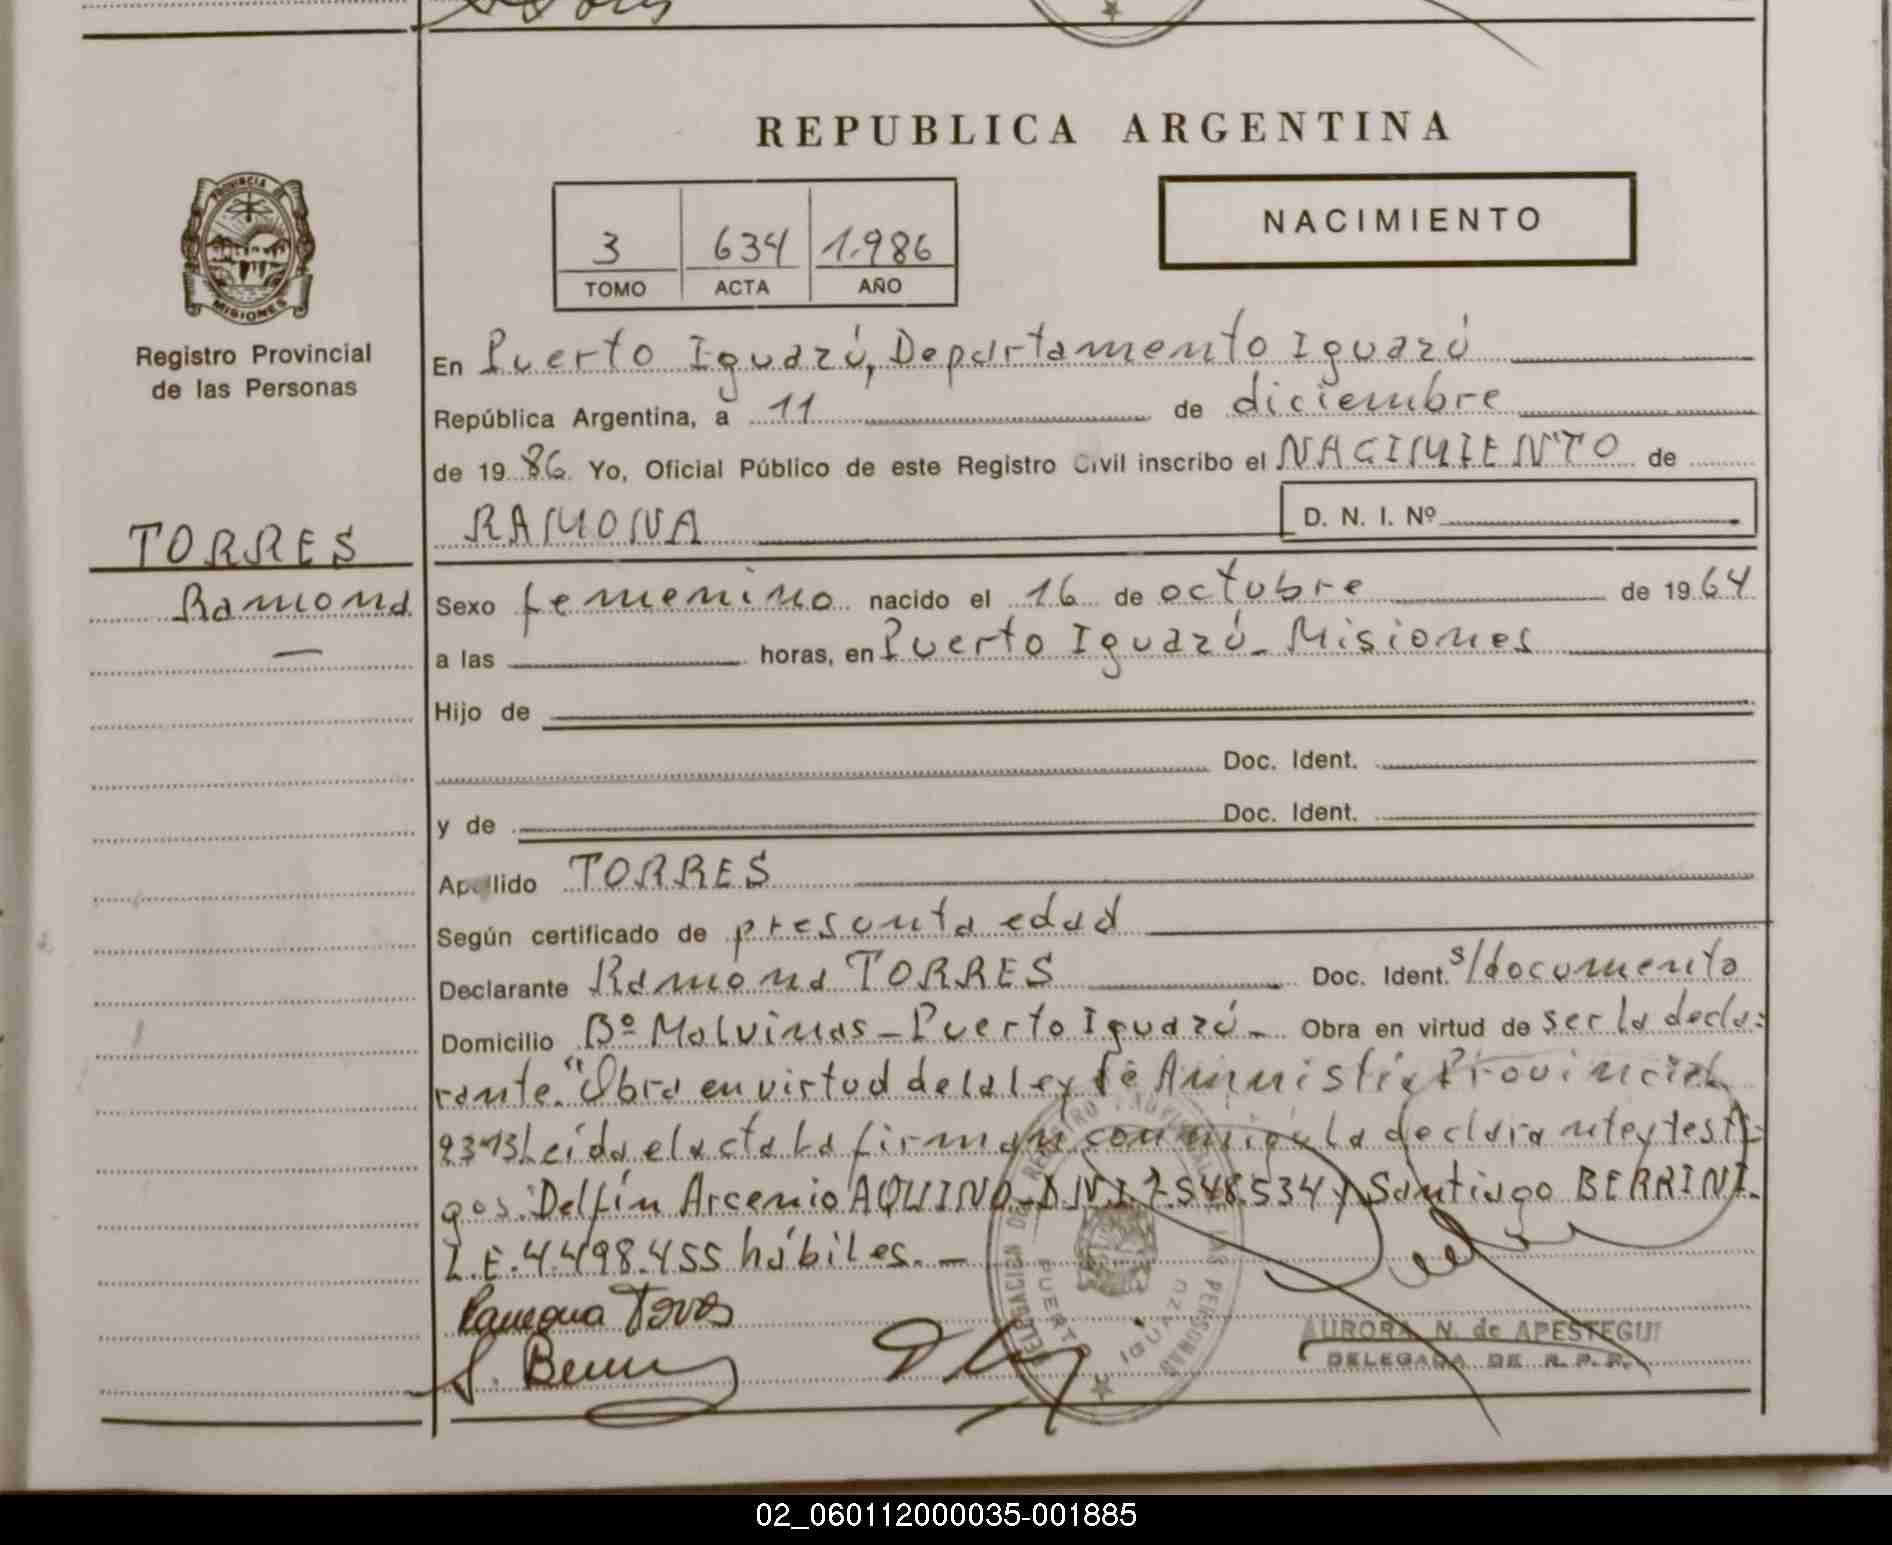 REPUBLICA ARGENTINA
PROVINCIA DE
MISIONES
Registro Provincial
de las Personas
3 634 1.986
TOMO ACTA AÑO
NACIMIENTO
En Puerto Iguazú, Departamento Iguazú
República Argentina, a 11 de diciembre
de 19 86 Yo, Oficial Público de este Registro Civil inscribo el NACIMIENTO de
RAMONA D. N. I. Nº
TORRES
Ramona
Sexo femenino nacido el 16 de octubre de 19 64
a las horas, en Puerto Iguazú - Misiones
Hijo de
Doc. Ident.
y de Doc. Ident.
Apellido TORRES
Según certificado de presunta edad
Declarante Ramona TORRES Doc. Ident. s/documento
Domicilio Bº Malvinas - Puerto Iguazú - Obra en virtud de ser la decla-
rante. "Obra en virtud de la ley de Amnistía Provincial
2313 Leída el acta la firman conmigo la declarante y testi-
gos: Delfín Arcenio AQUINO D.N.I. 7.548.534 y Santiago BERRINI
L.E. 4.498.455 hábiles. -
Ramona Torres
S. Berrini
DELEGACION DEL REGISTRO PROVINCIAL DE LAS PERSONAS
PUERTO IGUAZU
AURORA N. de APESTEGUI
DELEGADA DE R. P. P.
02_060112000035-001885